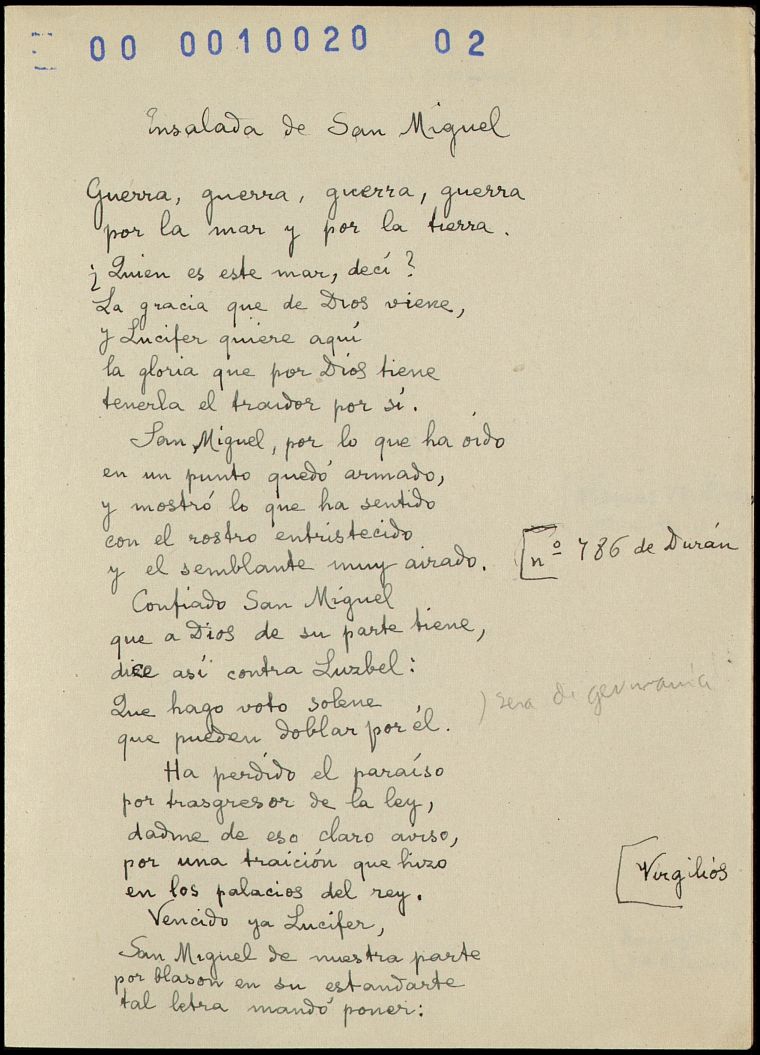 00 0010020 02
Ensalada de San Miguel
Guerra, guerra, guerra, guerra
por la mar y por la tierra.
¿Quien es este mar, decí?
La gracia que de Dios viene,
y Lucifer quiere aquí
la gloria que por Dios tiene
tenerla el traidor por sí.
San Miguel, por lo que ha oído
en un punto quedó armado,
y mostró lo que ha sentido
con el rostro entristecido
y el semblante muy airado.
[nº 786 de Durán
Confiado San Miguel
que a Dios de su parte tiene,
dice así contra Luzbel:
Que hago voto solene
que pueden doblar por él.
) sera de germanía
Ha perdido el paraíso
por trasgresor de la ley,
dadme de eso claro aviso,
por una traición que hizo
en los palacios del rey.
[Virgilios
Vencido ya Lucifer,
San Miguel de nuestra parte
por blason en su estandarte
tal letra mandó poner: